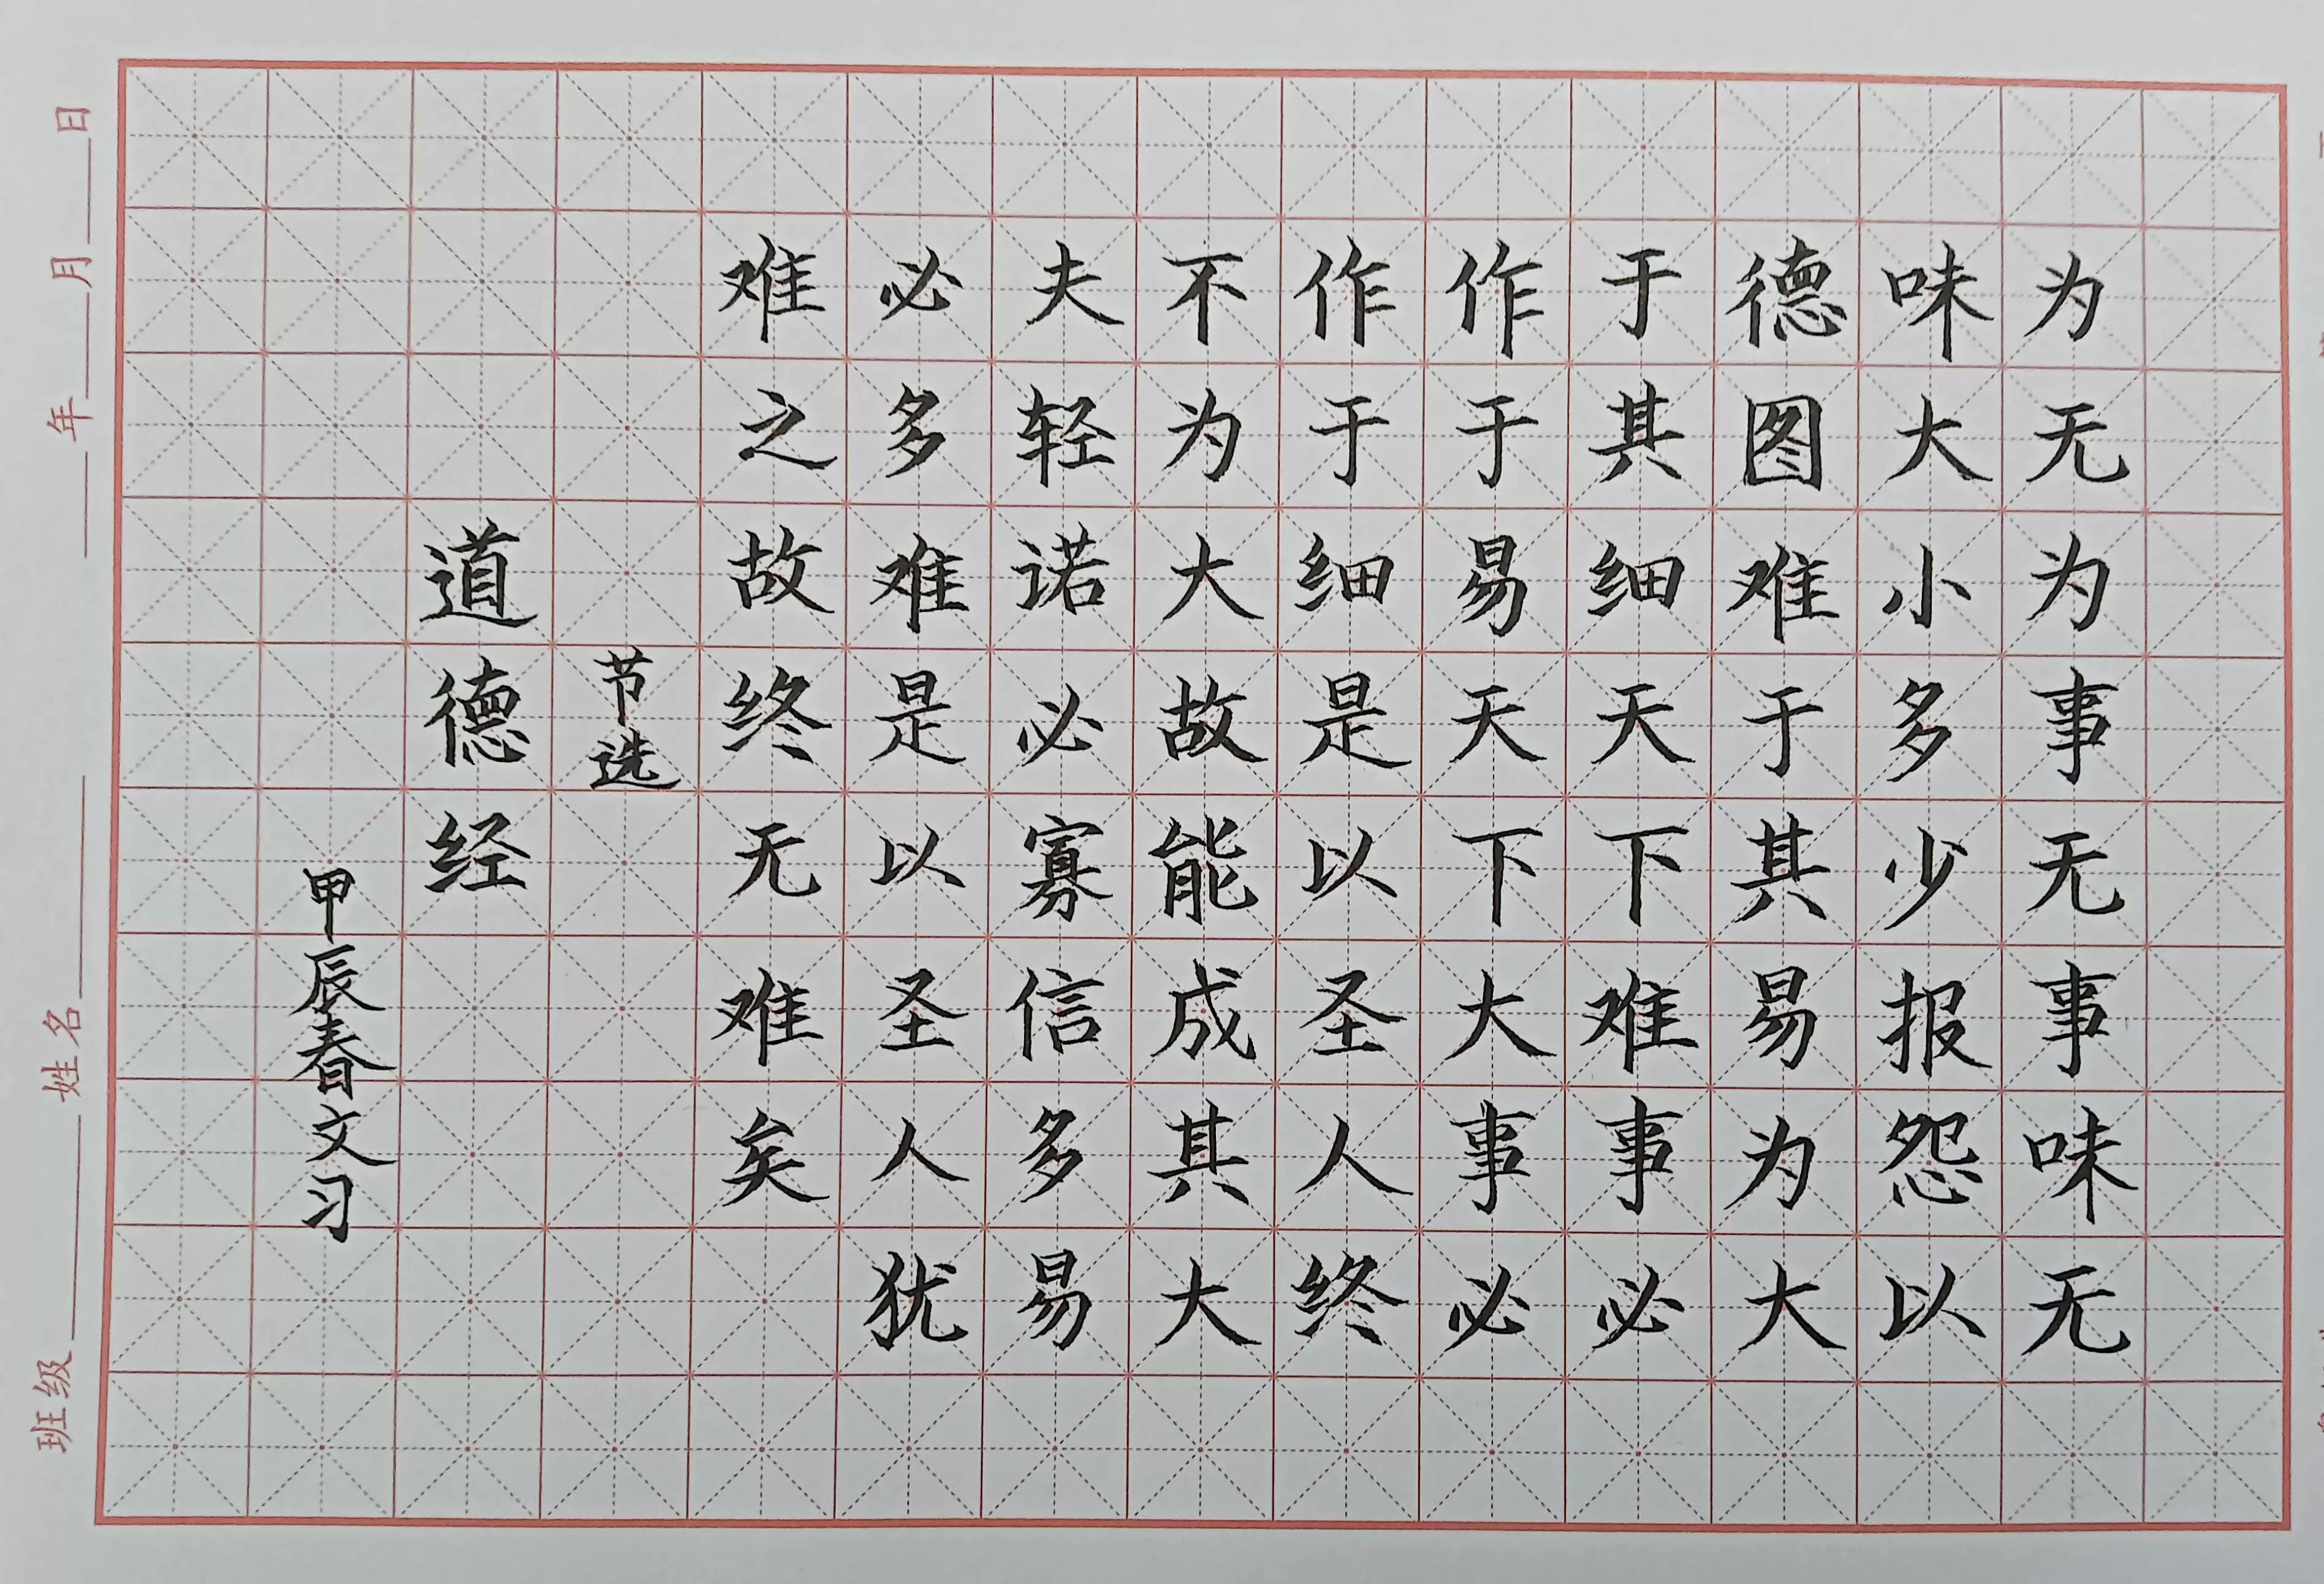 为无为事无事味无
味大小多少报怨以
德图难于其易为大
于其细天下难事必
作于易天下大事必
作于细是以圣人终
不为大故能成其大
夫轻诺必寡信多易
必多难是以圣人犹
难之故终无难矣
节选
道德经
甲辰春文习
班级 姓名 年 月 日